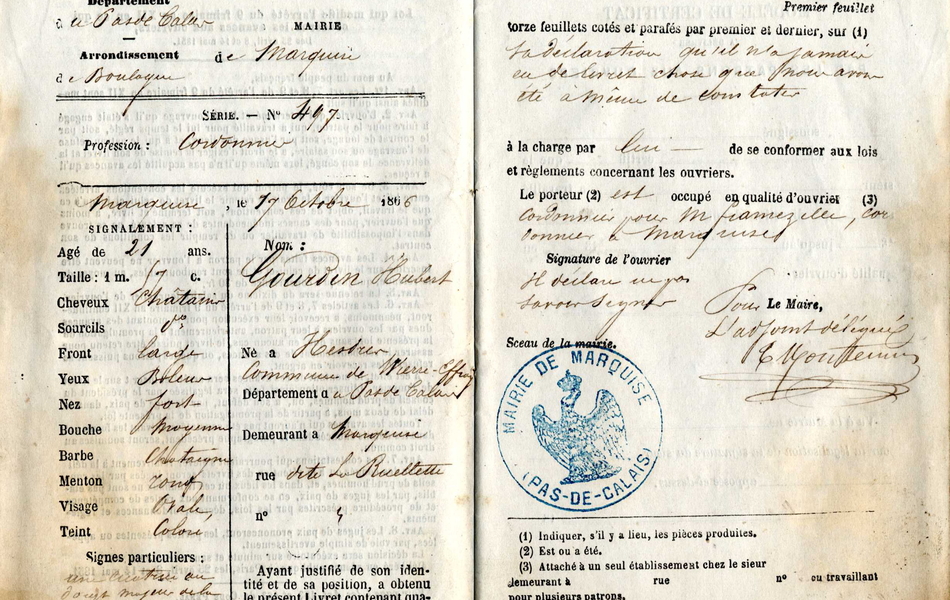 Département
du Pas de Calais
MAIRIE
Arrondissement
de Boulogne
de Marquise
SÉRIE. — N° 497
Profession : Cordonnier
Marquise, le 17 Octobre 1866
SIGNALEMENT :
Agé de 21 ans.
Taille : 1 m. 67 c.
Cheveux Chatain
Sourcils do
Front large
Yeux Bleus
Nez fort
Bouche Moyenne
Barbe Chataigne
Menton rond
Visage Ovale
Teint Coloré
Signes particuliers :
une cicatrice au
doigt majeur de la
Nom :
Gourdin Hubert
Né a Hesdres
Commune de Wierre-Effroy
Département du Pas de Calais
Demeurant a Marquise
rue dite La Ruellette
n°
Ayant justifié de son iden-
tité et de sa position, a obtenu
le présent Livret contenant qua-
Premier feuillet
torze feuillets cotés et parafés par premier et dernier, sur (1)
sa déclaration qu'il n'a jamais
eu de livret chose que nous avons
été à même de constater
à la charge par lui — de se conformer aux lois
et règlements concernant les ouvriers.
Le porteur (2) est occupé en qualité d'ouvrier (3)
cordonnier pour M framezelle, cor
donnier à Marquise
Signature de l'ouvrier
Il déclare ne pas
savoir signer
Pour Le Maire,
L'adjoint délégué
Sceau de la mairie.
MAIRIE DE MARQUISE
(PAS-DE-CALAIS)
(1) Indiquer, s'il y a lieu, les pièces produites.
(2) Est ou a été.
(3) Attaché à un seul établissement chez le sieur
demeurant à rue n° ou travaillant
pour plusieurs patrons.